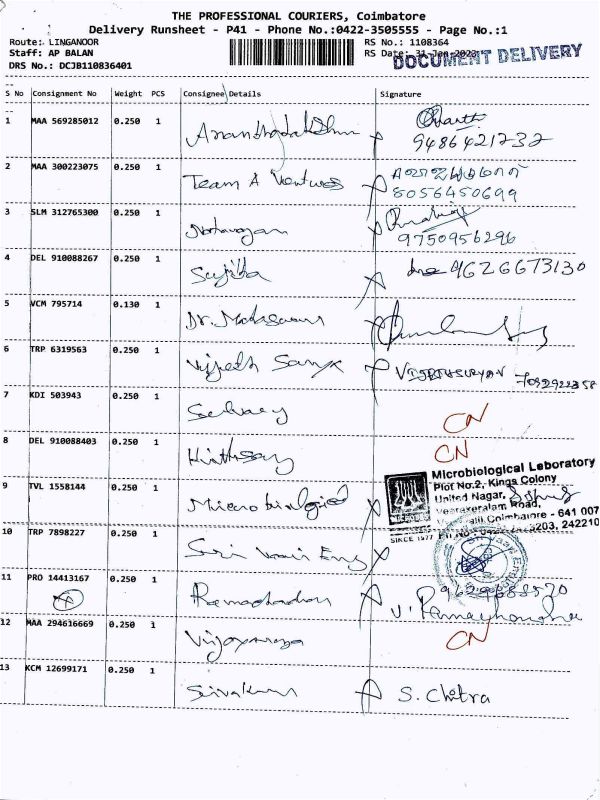 THE PROFESSIONAL COURIERS, Coimbatore
Delivery Runsheet - P41 - Phone No.:0422-3505555 - Page No.:1
Route: LINGANOOR RS No.: 1108364
Staff: AP BALAN RS Date: 31-Jan-2023
DOCUMENT DELIVERY
DRS No.: DCJB110836401
S No Consignment No Weight PCS Consignee Details Signature
1 MAA 569285012 0.250 1
9486421232
2 MAA 300223075 0.250 1 Team A Ventures
8056450699
3 SLM 312765300 0.250 1 Natarajan
9750956296
4 DEL 910088267 0.250 1 Sujitha 9626673130
5 VCM 795714 0.130 1
6 TRP 6319563 0.250 1 VIJETHSURYAN 7092922358
7 KDI 503943 0.250 1 CN
8 DEL 910088403 0.250 1 CN
Microbiological Laboratory
Plot No.2, Kings Colony
United Nagar,
Veerakeralam Road,
Coimbatore - 641 007
SINCE 1977
9 TVL 1558144 0.250 1 Microbiological
10 TRP 7898227 0.250 1 Sri Vaari Eng
11 PRO 14413167 0.250 1 Ramachandran
V. Ramachandran
12 MAA 294616669 0.250 1 CN
13 KCM 12699171 0.250 1 Sivakumar S. Chitra